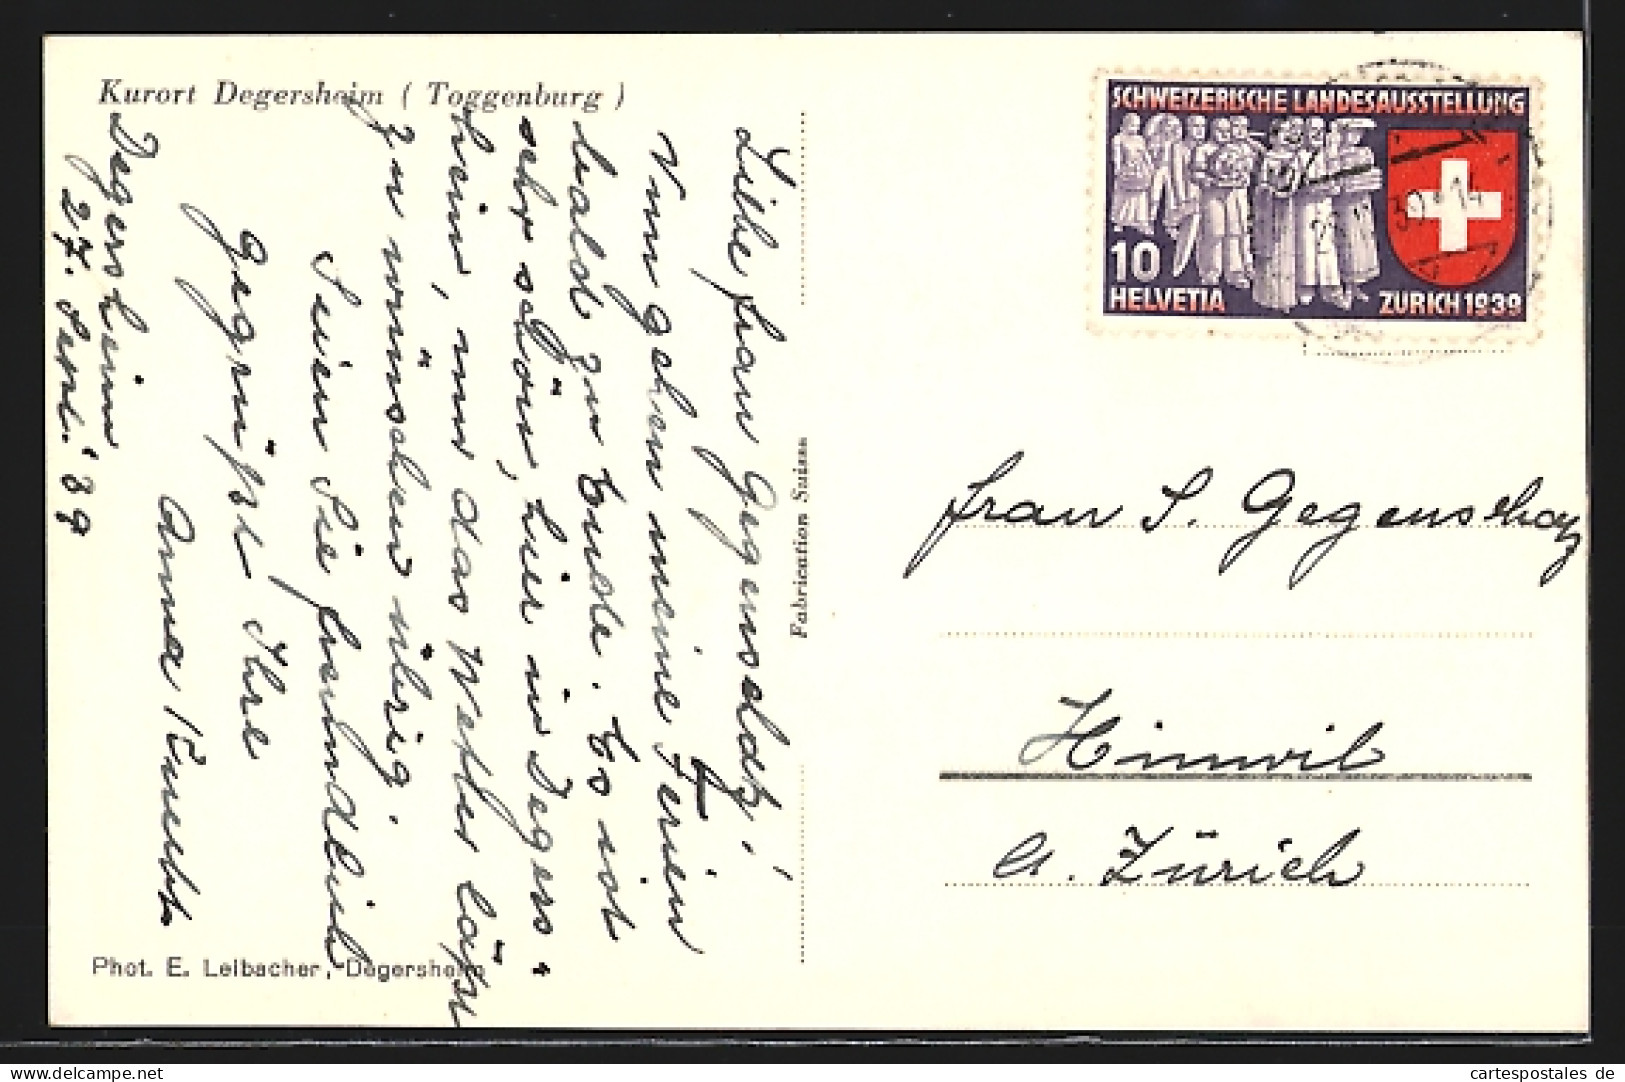 Kurort Degersheim ( Toggenburg )
Degersheim
27. Sept. '39
Liebe Frau Gegenschatz!
Nun gehen meine Ferien
bald zu Ende. Es ist
sehr schön, hier in Degers-
heim, nur das Wetter lässt
zu wünschen übrig.
Seien Sie freundlich
gegrüsst Ihre
Anna
Phot. E. Leibacher, Degersheim
Fabrication Suisse
SCHWEIZERISCHE LANDESAUSSTELLUNG
10
HELVETIA
ZÜRICH 1939
Frau S. Gegenschatz
Hinwil
Kt. Zürich
cartespostales de